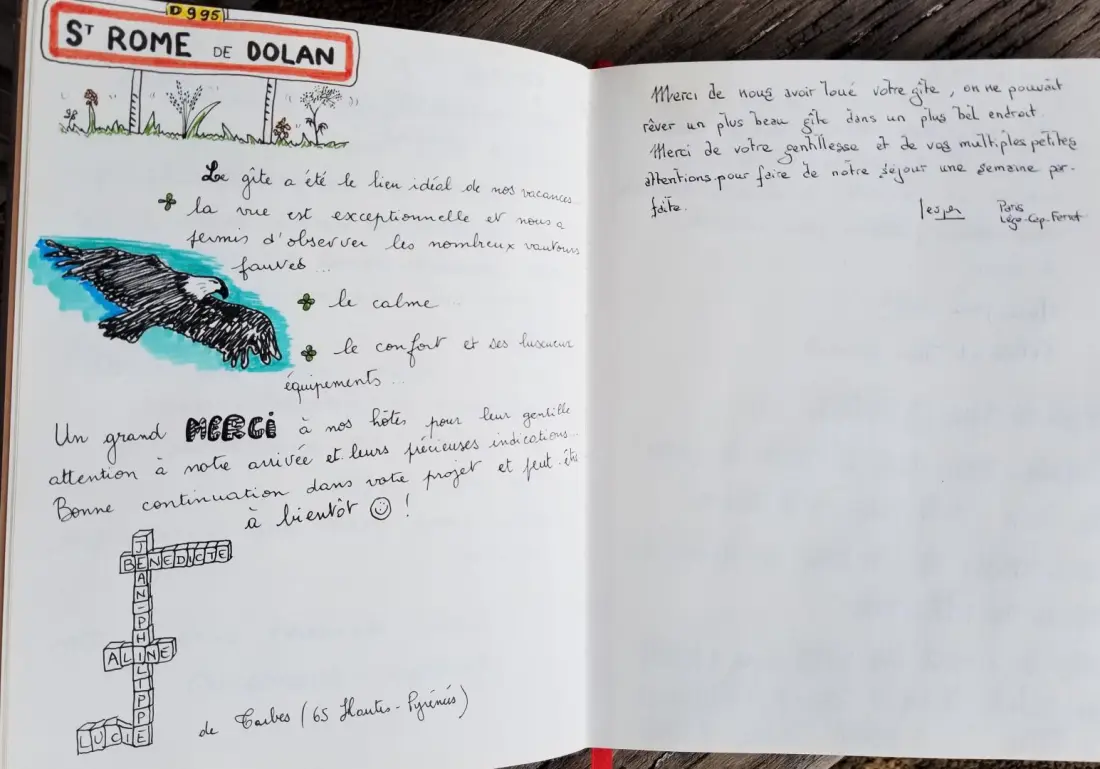 D995
ST ROME DE DOLAN
Le gîte a été le lieu idéal de nos vacances...
la vue est exceptionnelle et nous a
permis d'observer les nombreux vautours
fauves ...
le calme ...
le confort et ses luxueux
équipements ...
Un grand MERCi à nos hôtes pour leur gentille
attention à notre arrivée et leurs précieuses indications...
Bonne continuation dans votre projet et peut-être
à bientôt !
JEAN-PHILIPPE
BENEDICTE
ALINE
LUCIE
de Tarbes (65 Hautes-Pyrénées)
Merci de nous avoir loué votre gîte, on ne pouvait
rêver un plus beau gîte dans un plus bel endroit.
Merci de votre gentillesse et de vos multiples petites
attentions pour faire de notre séjour une semaine par-
faite.
Paris
Lège-Cap-Ferret